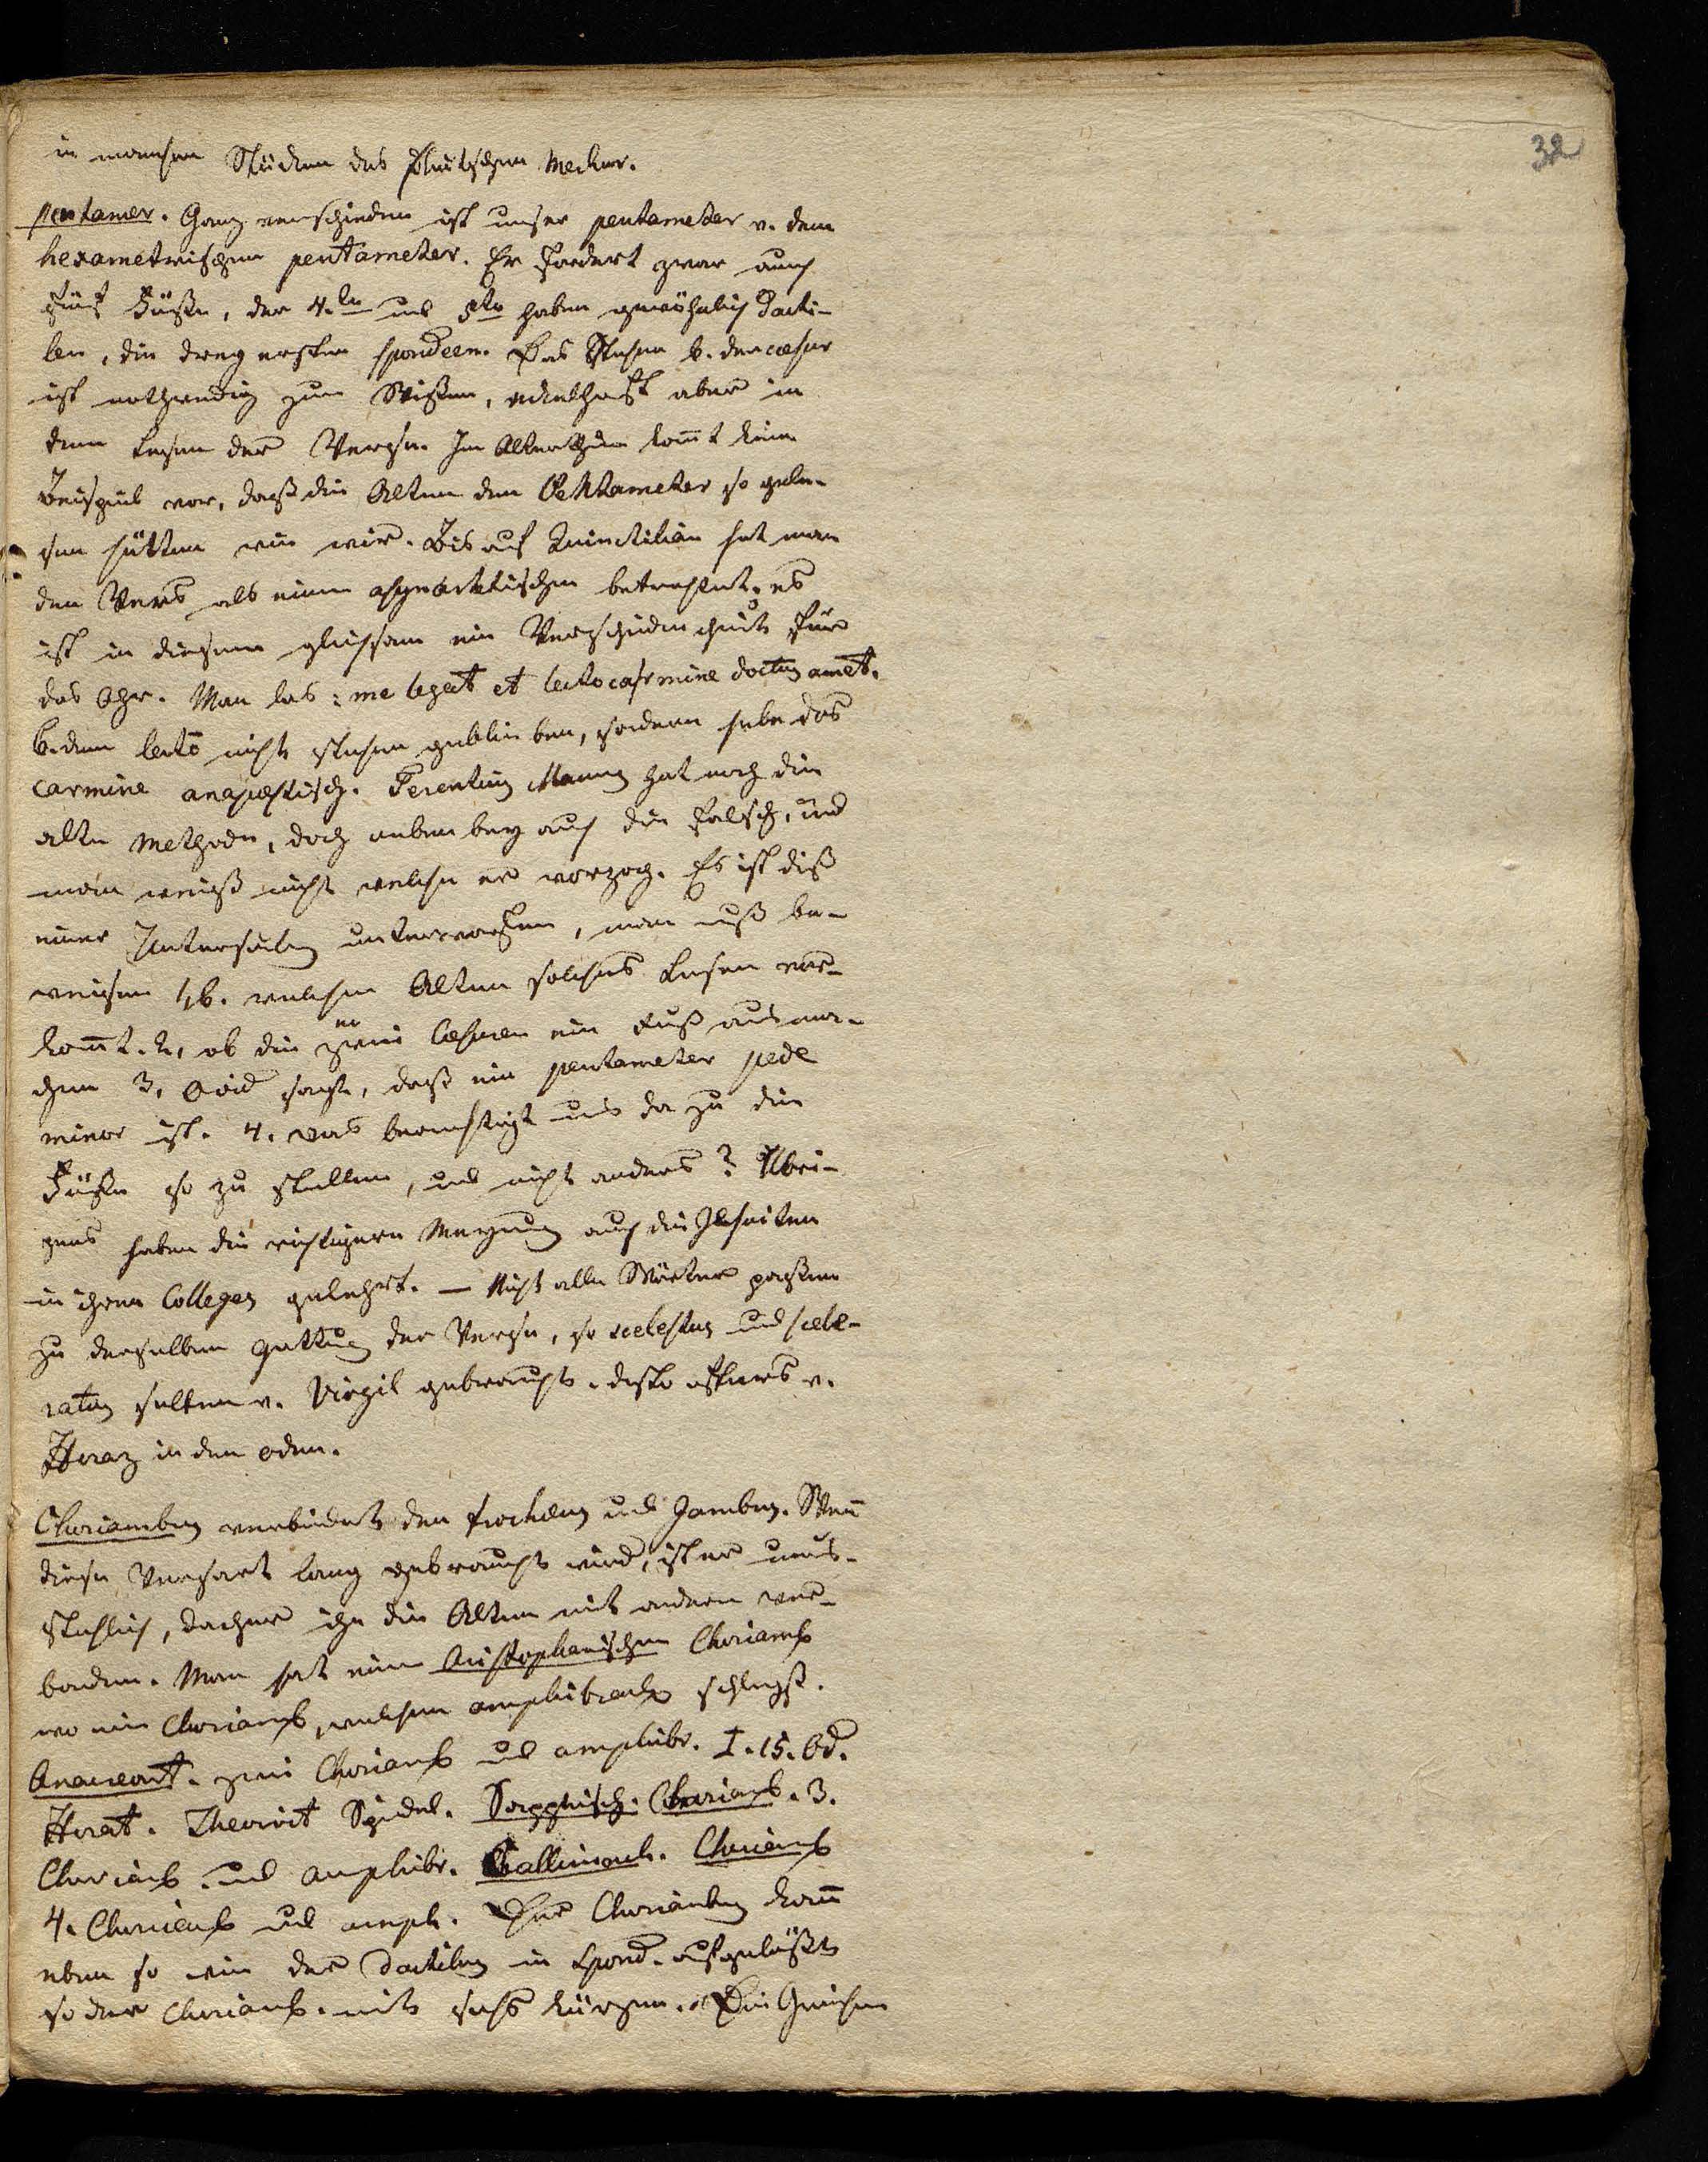 32
in manchen Stücken das plautischen Meckers.
pentamer. Ganz verschieden ist unser pentameter v. dem
hexametrischen pentameter. Er fordert zwar auch
fünf Füße, der 4.te und 5te haben gewöhnlich Dacti-
len, die drey ersten spondeen. Das Stehen b. der cæsur
ist nothwendig zum Wißen, eckelhaft aber in
dem Lesen der Verse. Im Alterthum komt kein
Beispiel vor, daß die Alten den Pentameter so gele-
sen hätten wie wir. Bis auf Quinctilian hat man
den Vers als einen asynarktischen betrachtet. es
ist in diesem gleichsam ein für
das Ohr. Man las: me legat et lecto carmine doctus amet.
b. dem lectō nicht stehen geblieben, sondern habe das
carmine anapæstisch. Terentius Maurus hat noch die
alte Methode, doch nebenbey auch die falsche, und
man weiß nicht welche er vorzog. Es ist diß
einer Untersuchung unterworfen, man muß be-
weisen 1, b. welchen Alten solches Lesen vor-
komt. 2, ob die zwei cæsuren ein Fuß ausma-
chen 3, Ovid sagt, daß ein pentameter pede
minor ist. 4. was berechtigt uns da zu die
Füße so zu stellen, und nicht anders? Ubri-
gens haben die richtigere Meynung auch die Jesuiten
in ihren Collegen gelehrt. — Nicht alle Wörter paßen
zu derselben Gattung der Verse, so scelestus und scele-
ratus selten v. Virgil gebraucht. desto öfters v.
Horaz in den Oden.
Choriambus verbindet den trochæus und Jambus. Wenn
diese Versart lang gebraucht wird, ist er unaus-
stehlich, dacher ihn die Alten mit andern ver-
banden. Man hat einen Aristophanischen Choriamb
wo ein Choriamb, welchen amphibrach schließt.
Anacreont. zwei Choriamb und amphibr. I. 15. Od.
Horat. Theocrit Sapphisch. Choriamb. 3.
Choriamb. und amphibr. Callimach. Choriamb
4. Choriamb und amph. Der Choriambus kann
eben so wie der Dactilus in Spond. aufgelößt
so der Choriamb. mit sechs kürzen. Die Griechen